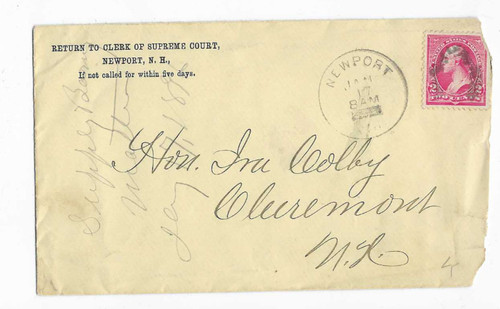 RETURN TO CLERK OF SUPREME COURT,
NEWPORT, N. H.,
If not called for within five days.
NEWPORT
JAN
17
8 AM
2 2
Hon. Ira Colby
Claremont
N.H.
Supply